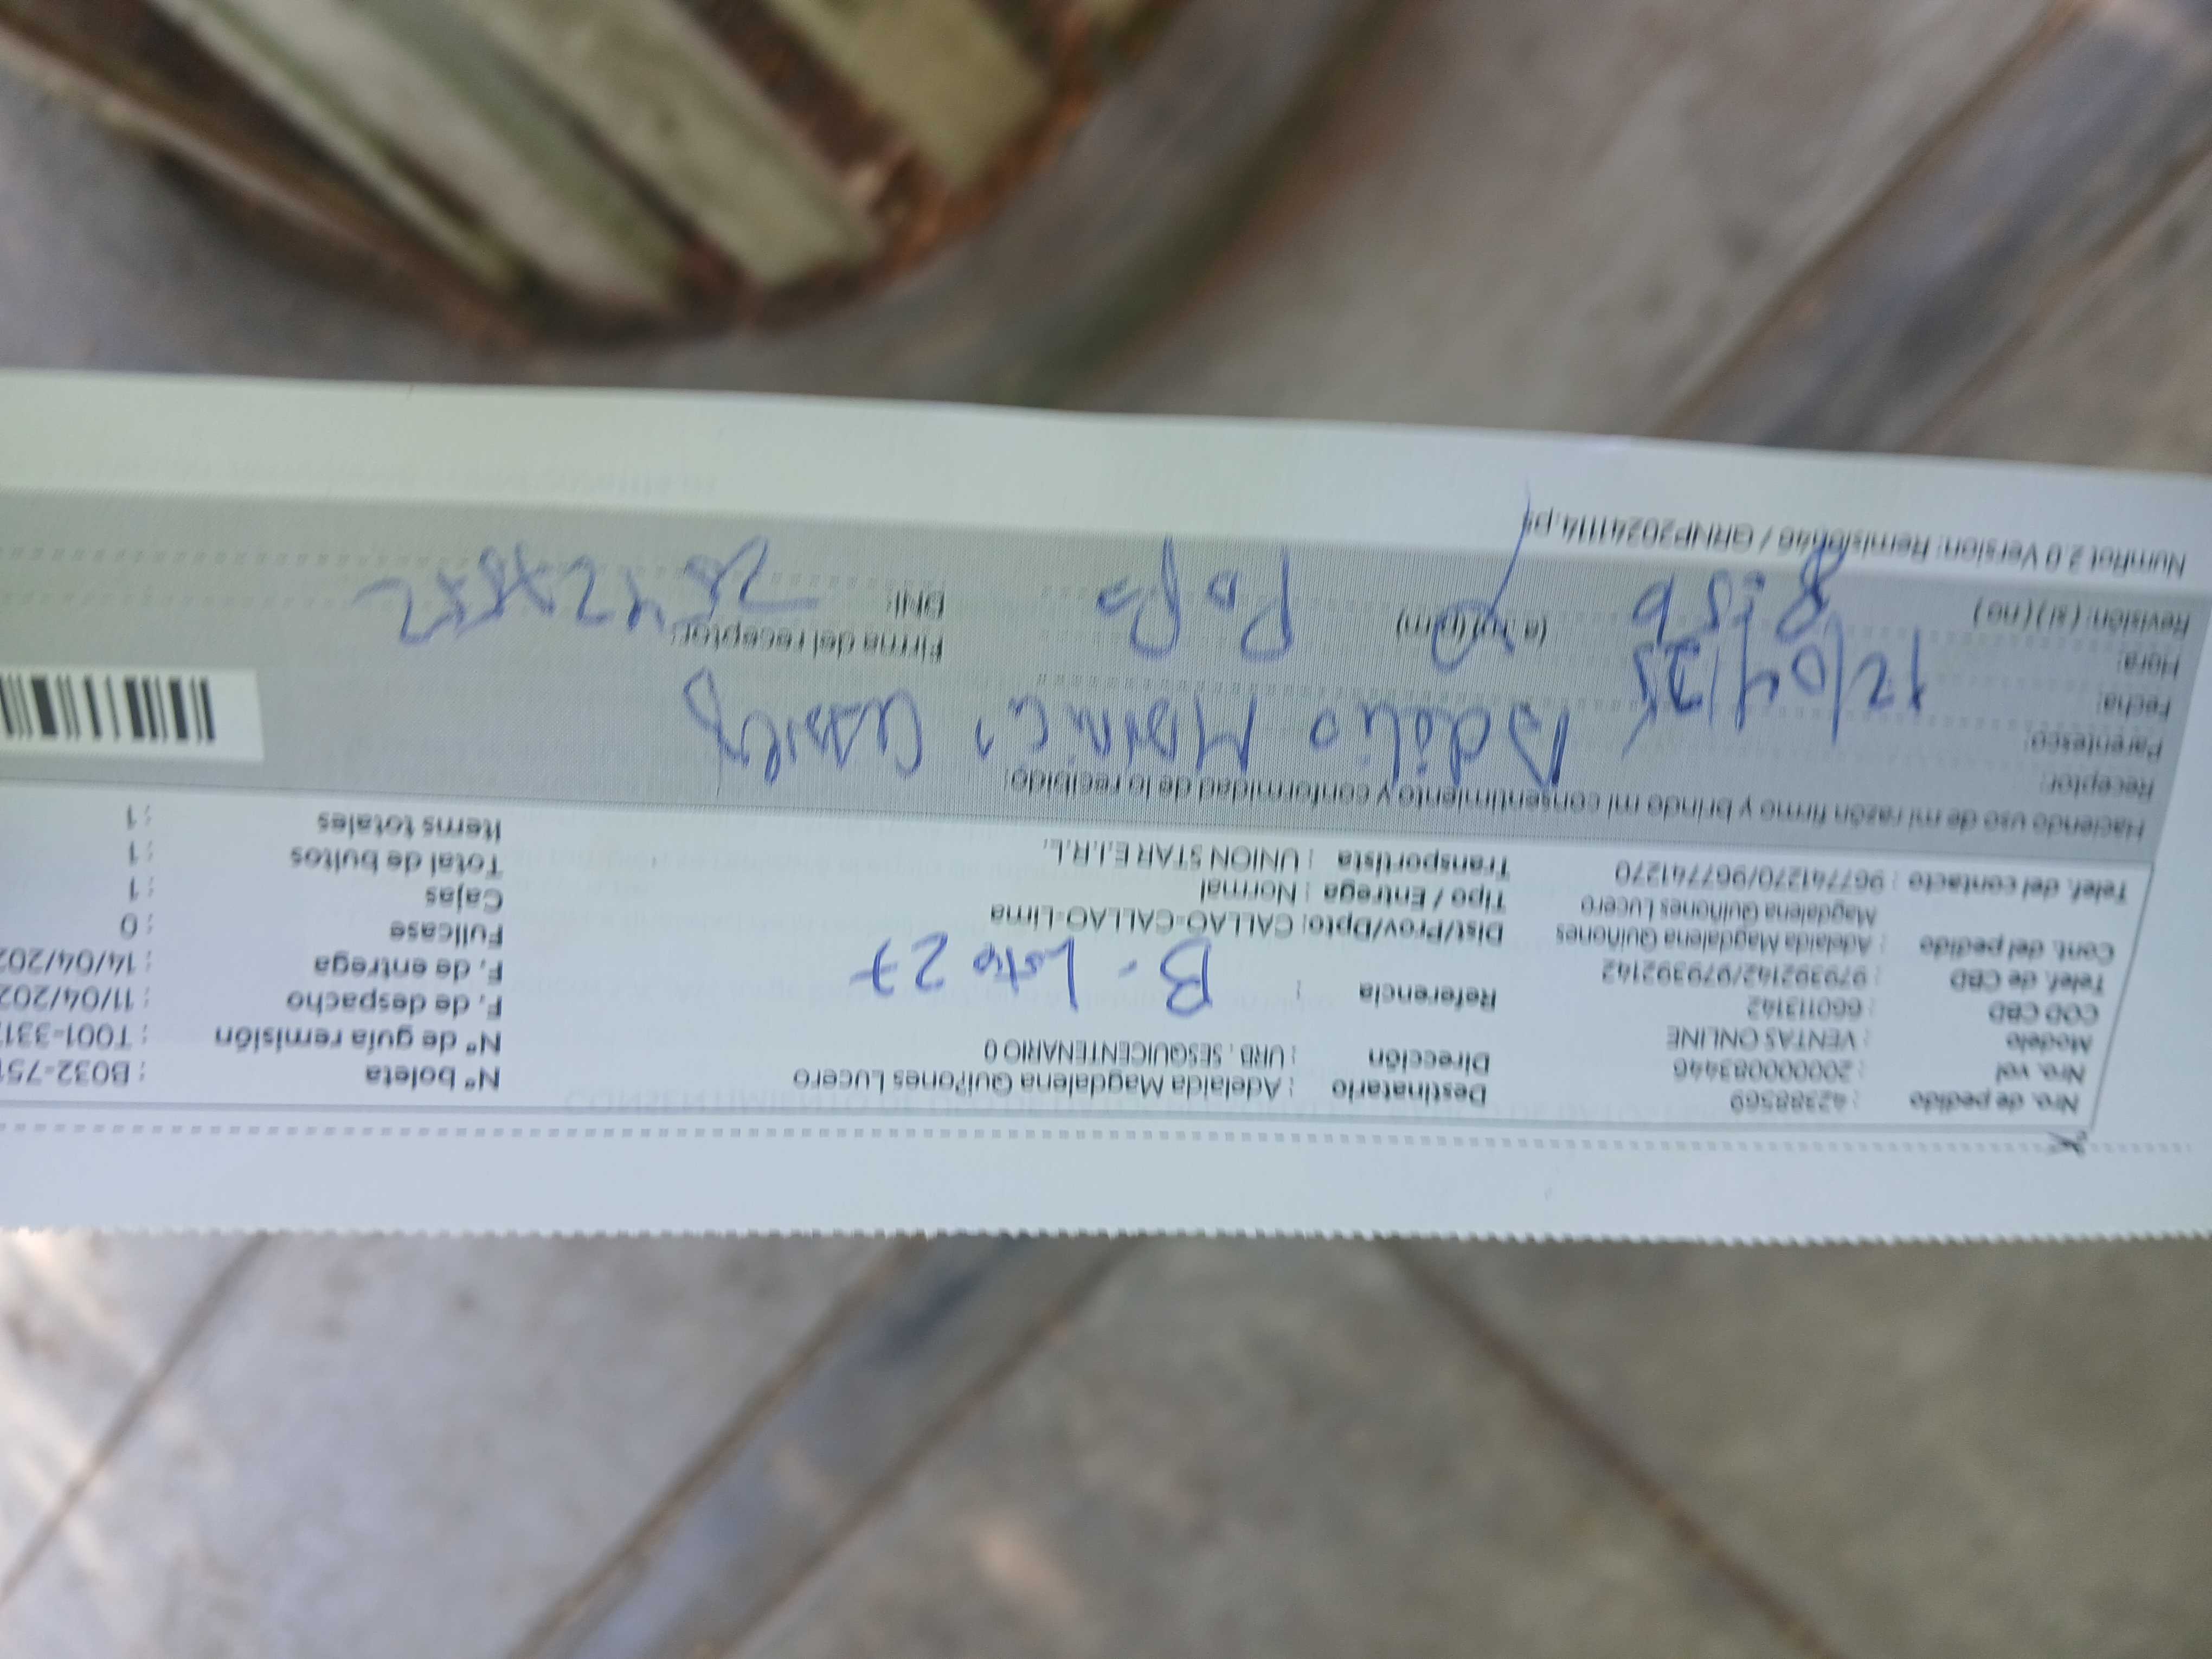 Nro. de pedido : 42388569 Destinatario : Adelaida Magdalena Quiñones Lucero Nº boleta : B032-751
Nro. vol : 20000083446 Dirección : URB. SESQUICENTENARIO 0 Nº de guía remisión : T001-331
Modelo : VENTAS ONLINE F. de despacho : 11/04/202
COD CBD : 660113142 Referencia : B - Lote 27 F. de entrega : 14/04/202
Telef. de CBD : 979392142/979392142 Fullcase : 0
Cont. del pedido : Adelaida Magdalena Quiñones Dist/Prov/Dpto: CALLAO-CALLAO-Lima Cajas : 1
Magdalena Quiñones Lucero Tipo / Entrega : Normal Total de bultos : 1
Telef. del contacto : 967741270/967741270 Transportista : UNION STAR E.I.R.L. Items totales : 1
Haciendo uso de mi razón firmo y brindo mi consentimiento y conformidad de lo recibido:
Receptor:
Parentesco:
Fecha: 12/04/25
Hora: 8:56 (a.m)(p.m) Papa Firma del receptor:
Revisión: (si) (no) DNI:
NumRot 2.0 Version: Remision46 / GRNP20241114.p